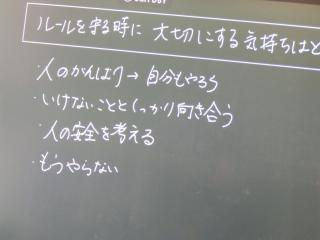 ルールを守る時に 大切にする気持ちは
・人のがんばり→自分もやろう
・いけないこととしっかり向き合う
・人の安全を考える
・もうやらない